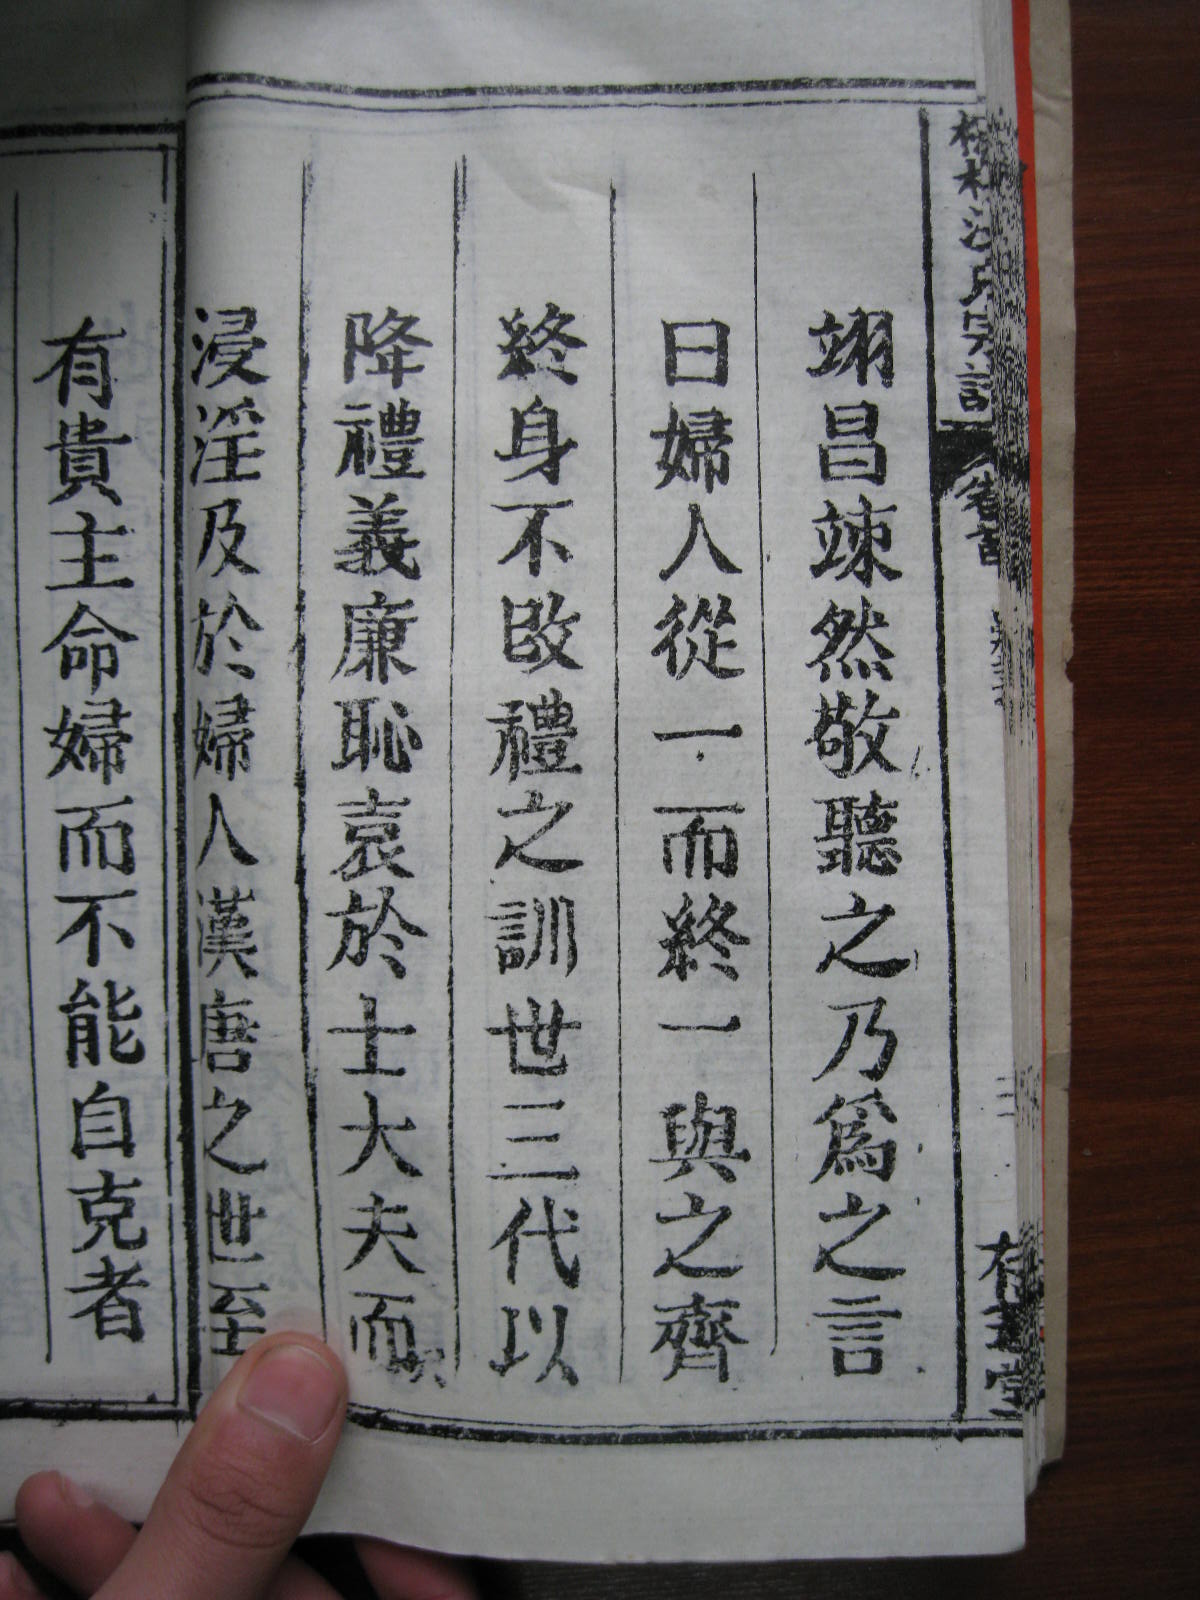 翊昌竦然敬聽之乃爲之言
曰婦人從一而終一與之齊
終身不改禮之訓世三代以
降禮義廉恥衰於士大夫而
浸淫及於婦人漢唐之世至
有貴主命婦而不能自克者